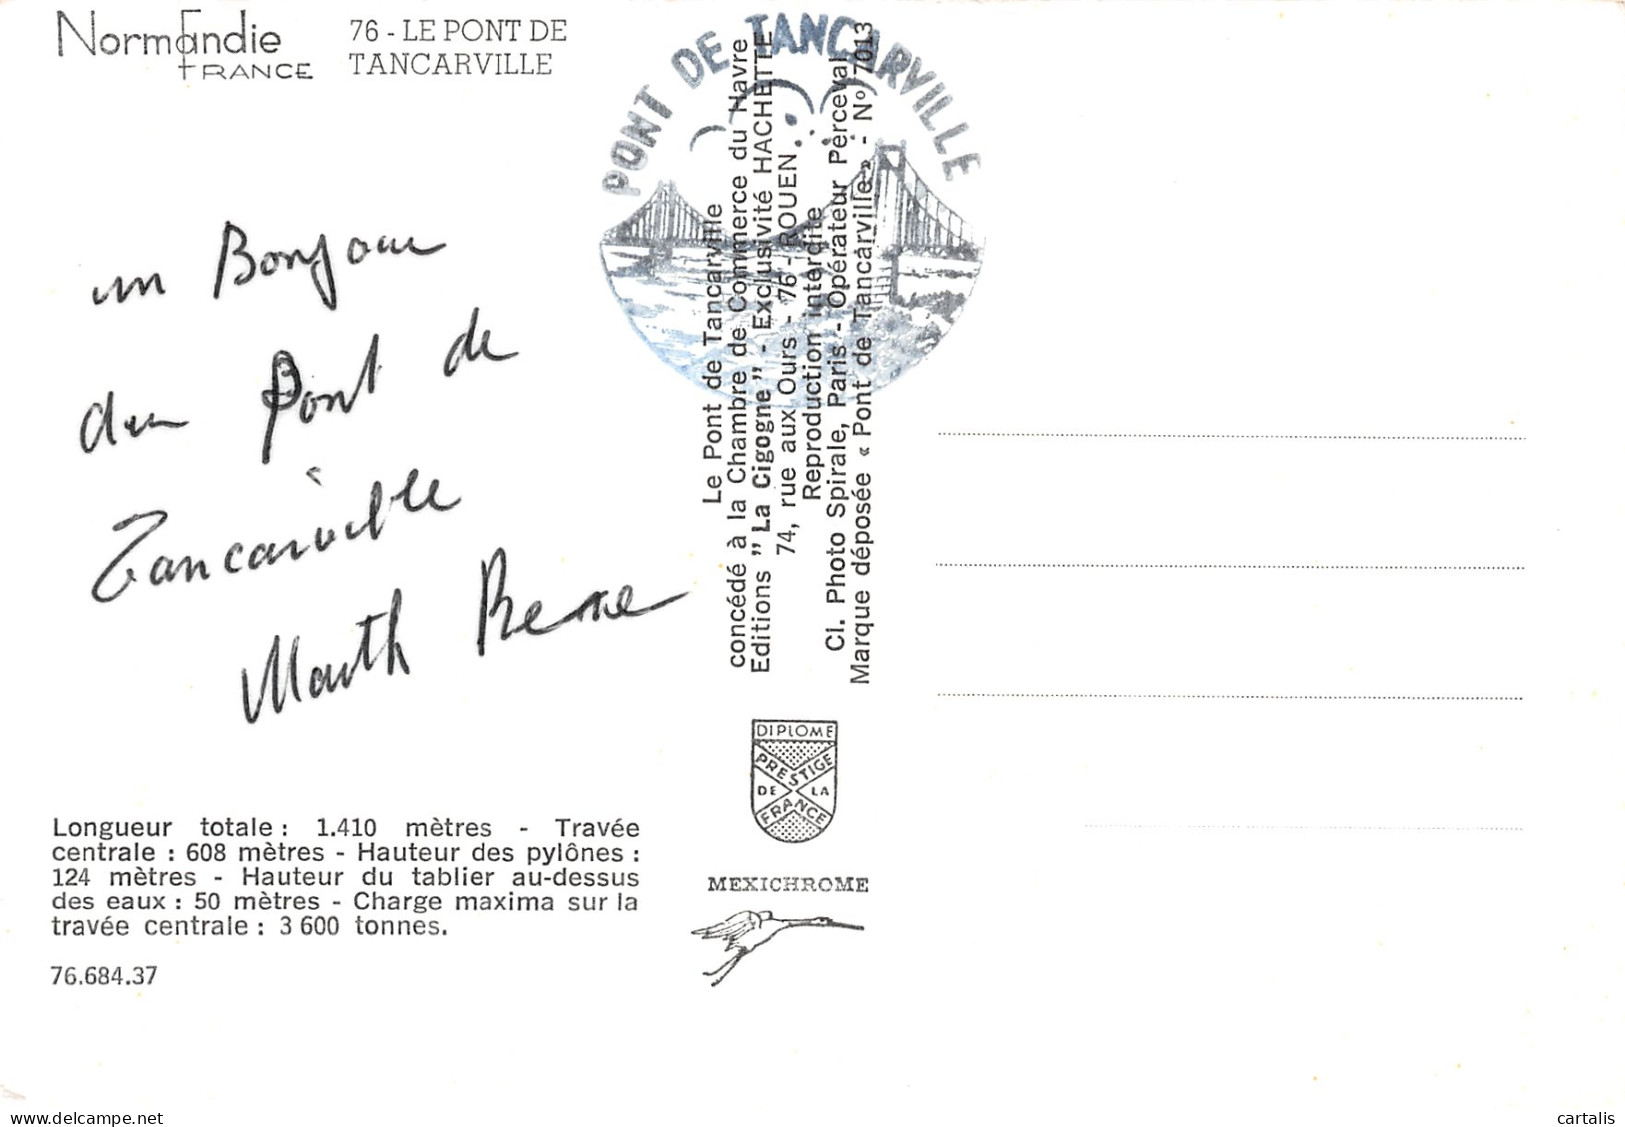 Normandie
FRANCE
76 - LE PONT DE
TANCARVILLE
PONT DE TANCARVILLE
un Bonjour
du Pont de
Tancarville
Marth
Le Pont de Tancarville
concédé à la Chambre de Commerce du Havre
Editions " La Cigogne " - Exclusivité HACHETTE
74, rue aux Ours - 76 - ROUEN
Reproduction interdite
Ci. Photo Spirale, Paris - Opérateur Perceval
Marque déposée « Pont de Tancarville » - No 7013
DIPLOME
PRESTIGE
DE LA
FRANCE
MEXICHROME
Longueur totale : 1.410 mètres - Travée
centrale : 608 mètres - Hauteur des pylônes :
124 mètres - Hauteur du tablier au-dessus
des eaux : 50 mètres - Charge maxima sur la
travée centrale : 3 600 tonnes.
76.684.37
www.delcampe.net
cartalis